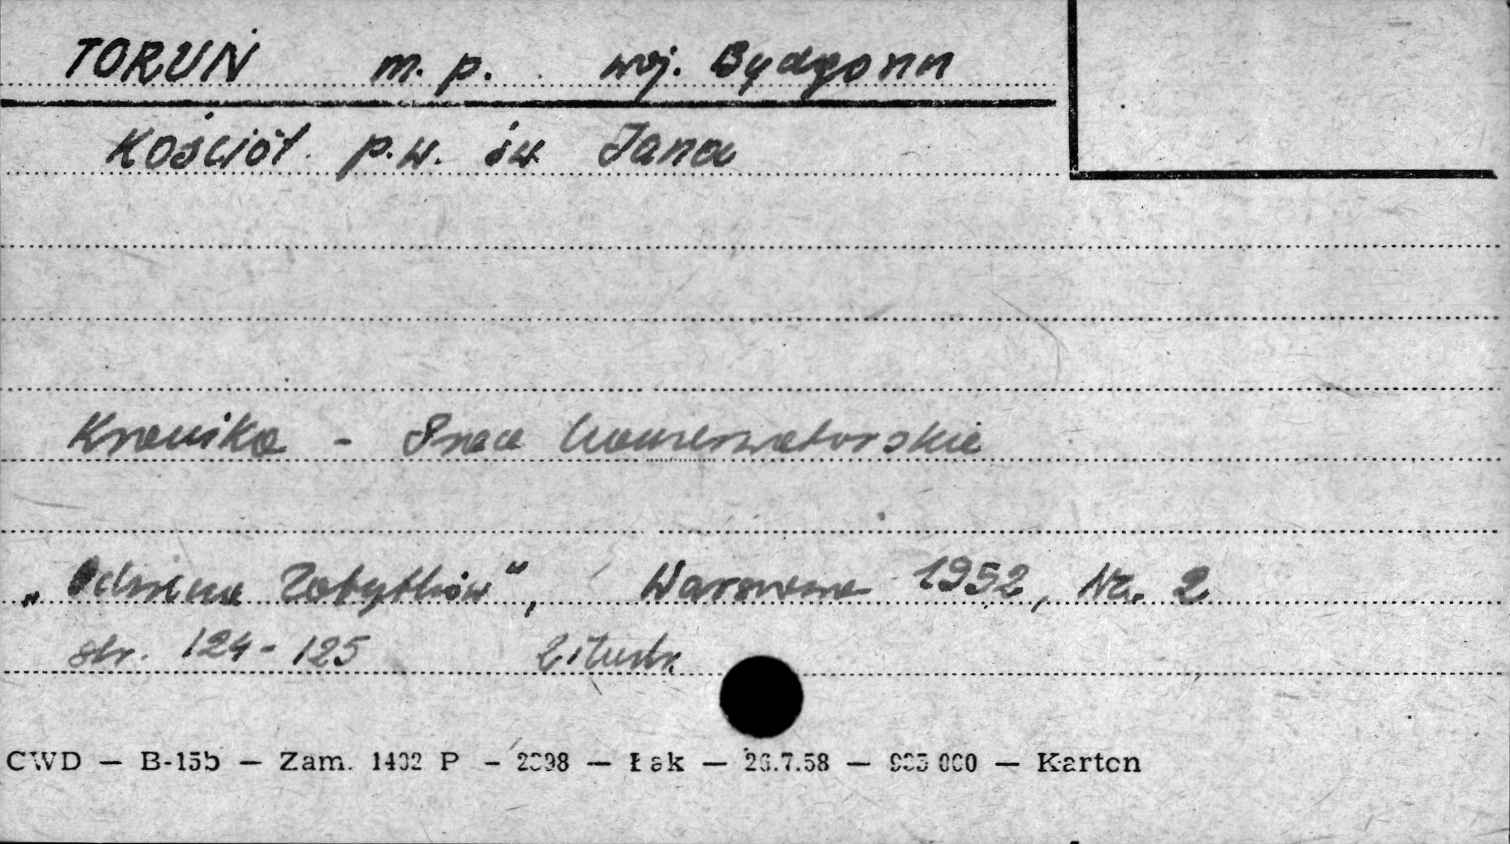 TORUŃ m. p. woj. Bydgoszcz
Kościół p.w. św Jana
Kronika - Prace konserwatorskie
„Ochrona Zabytków", Warszawa 1952, Nr. 2
str. 124-125 2 ilustr.
CWD — B-15b — Zam. 1402 P — 2398 — Łak — 26.7.58 — — Karton